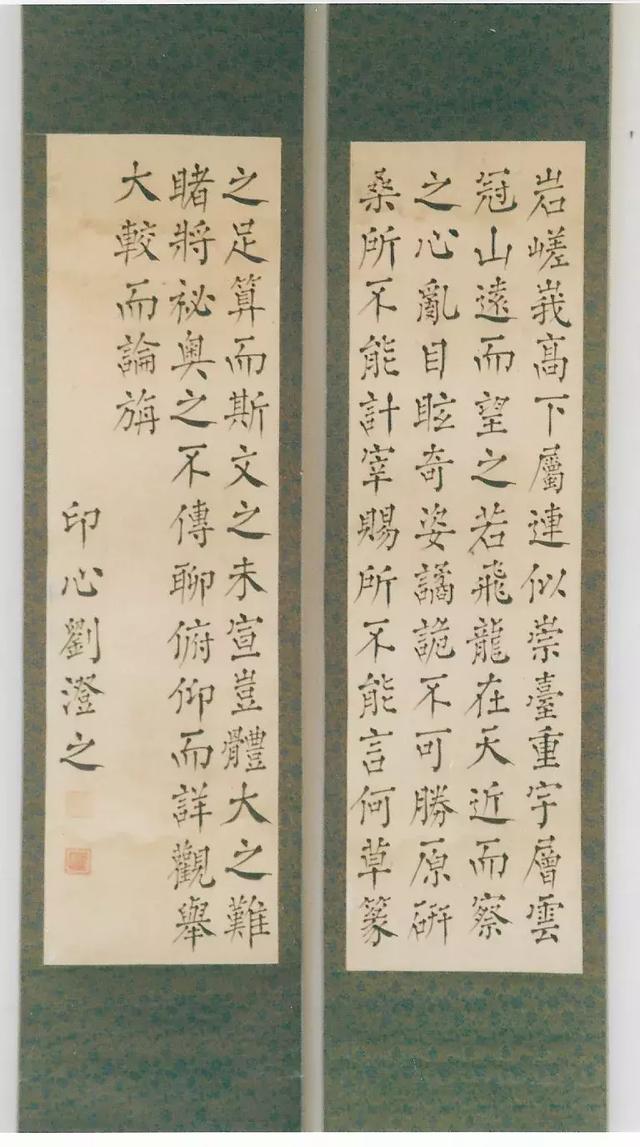 岩嵯峩高下屬連似崇臺重宇層雲
冠山遠而望之若飛龍在天近而察
之心亂目眩奇姿譎詭不可勝原研
桑所不能計宰賜所不能言何草篆
之足算而斯文之未宣豈體大之難
睹將祕奥之不傳聊俯仰而詳觀舉
大較而論旃
印心劉澄之